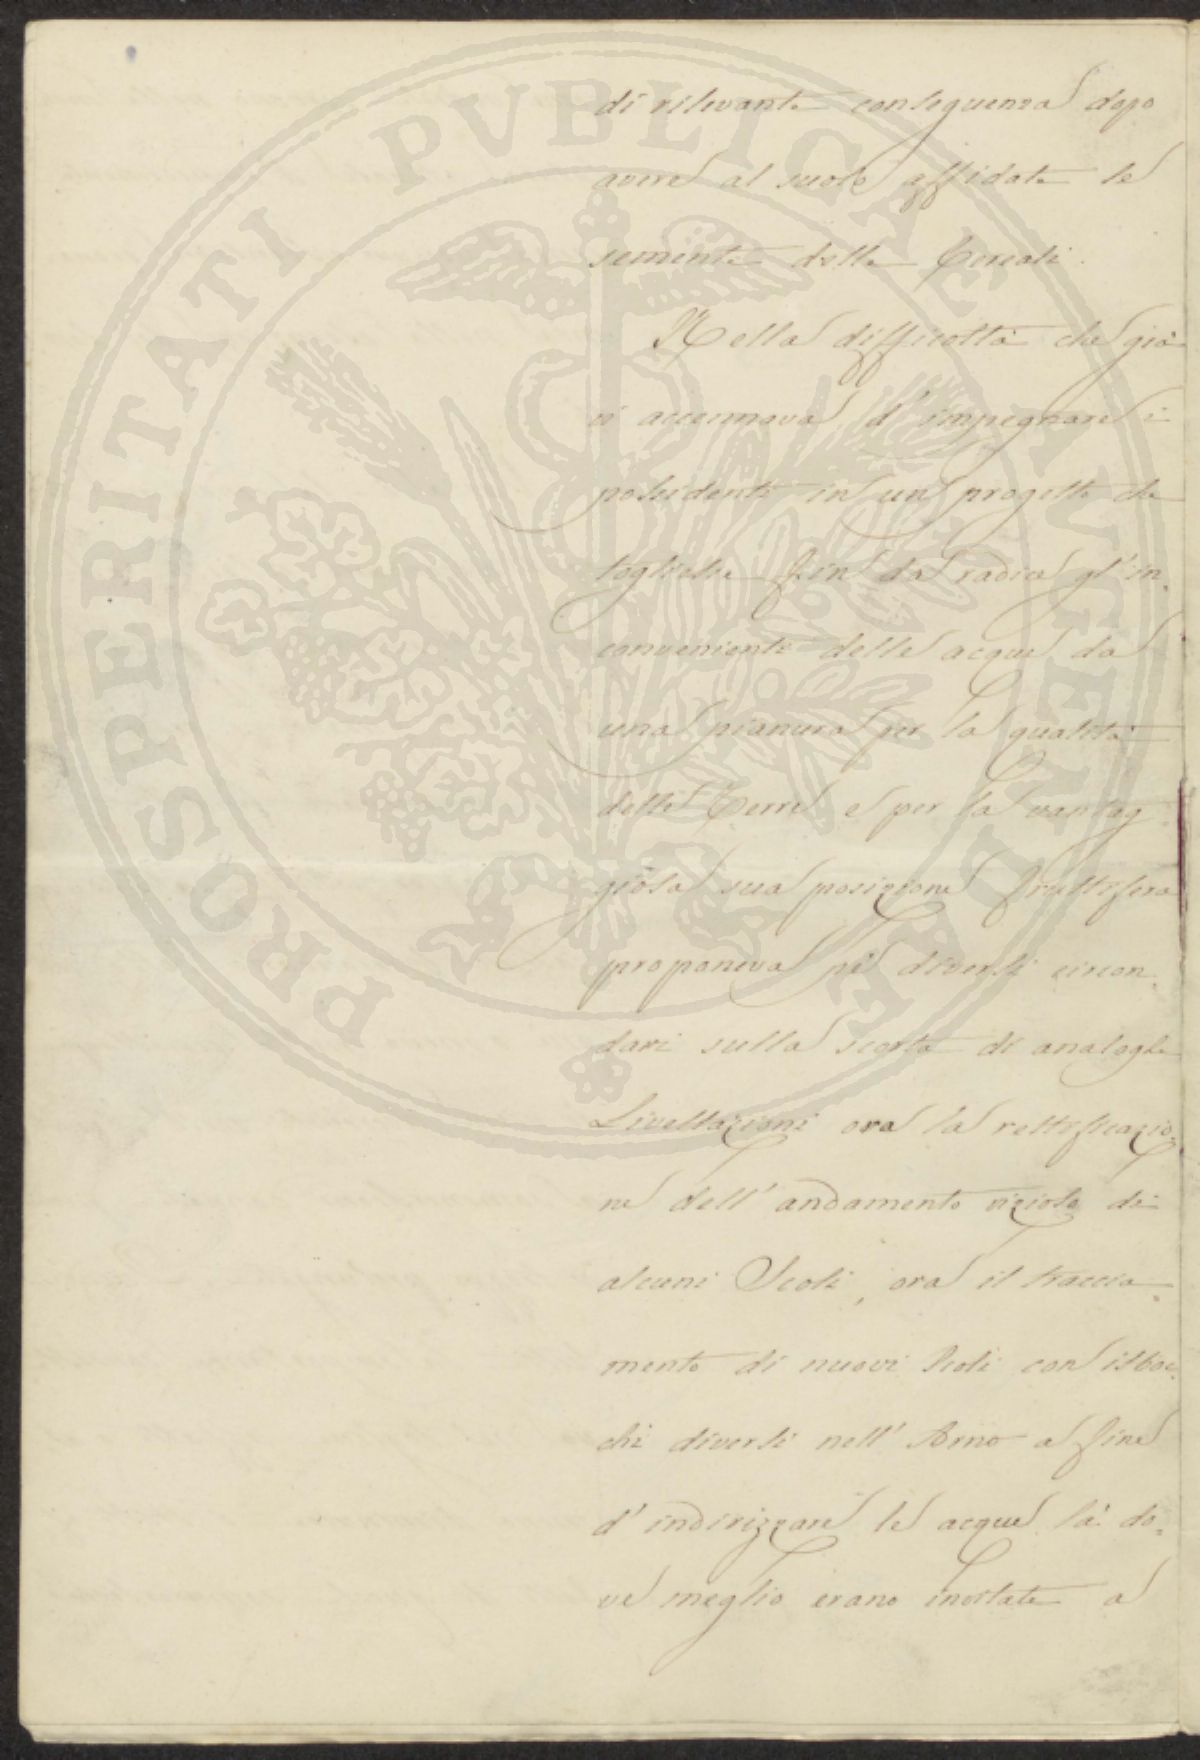 di rilevante conseguenza dopo
avere al suolo affidate le
semente delle Cereali.
Nella difficoltà che già
vi accennava d'impegnare i
possidenti in un progetto che
togliesse fin da radice gl'in,
conveniente delle acque da
una pianura per la qualità
delle Terre e per la vantag,
giosa sua posizione fruttifera
proponeva pei diversi circon,
dari sulla scorta di analoghe
Livellazioni ora la rettificazio,
ne dell'andamento vizioso di
alcuni Scoli, ora il traccia,
mento di nuovi Scoli con isboc,
chi diversi nell'Arno a fine
d'indirizzare le acque là do,
ve meglio erano inoltate a
PROSPERITATI PVBLICAE AVGENDAE